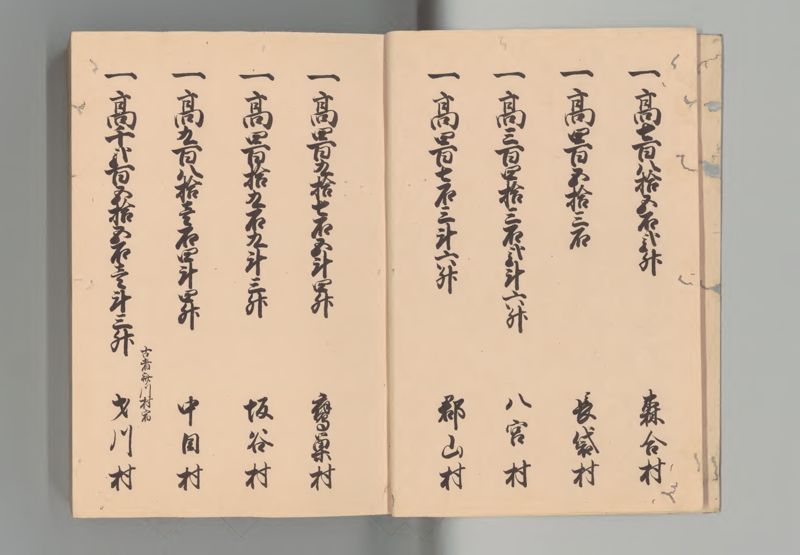 一 高七百八拾五石弐升 森合村
一 高四百五拾三石 長袋村
一 高三百四拾三石弐斗六升 八宮村
一 高四百七石三斗六升 郡山村
一 高四百九拾七石五斗四升 鷹巣村
一 高四百拾九石九斗三升 坂谷村
一 高九百八拾壱石四斗四升 中目村
一 高千弐百五拾五石壱斗三升 才川村